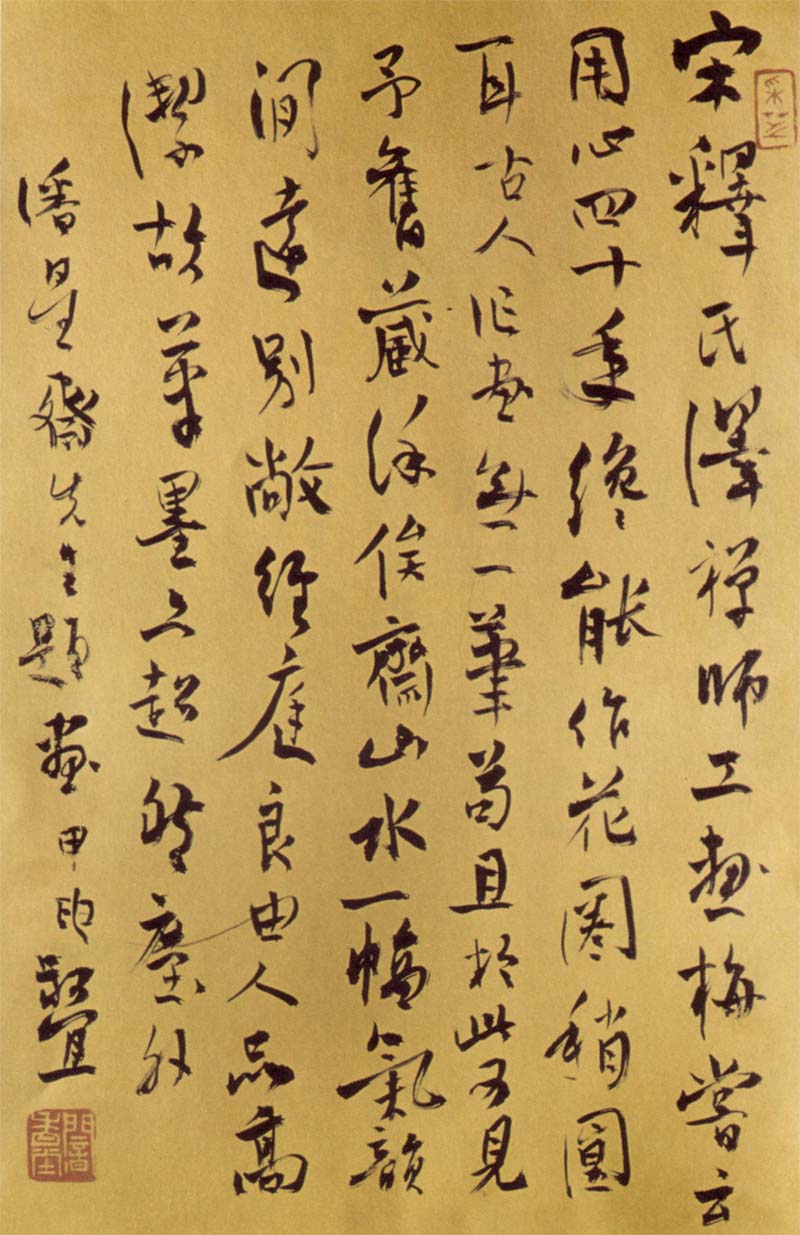 宋釋氏澤禪師工畫梅嘗云
用心四十年纔能作花圈稍圓
耳古人作畫無一筆苟且於此可見
予舊藏徐俟齋山水一幅氣韻
閒遠別敞徑庭良由人品高
潔故筆墨亦超然塵外
潘星齋先生題畫甲申